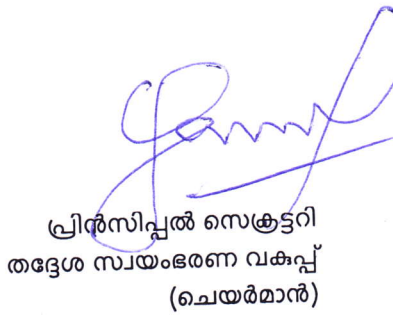 പ്രിൻസിപ്പൽ സെക്രട്ടറി
തദ്ദേശ സ്വയംഭരണ വകുപ്പ്
(ചെയർമാൻ)